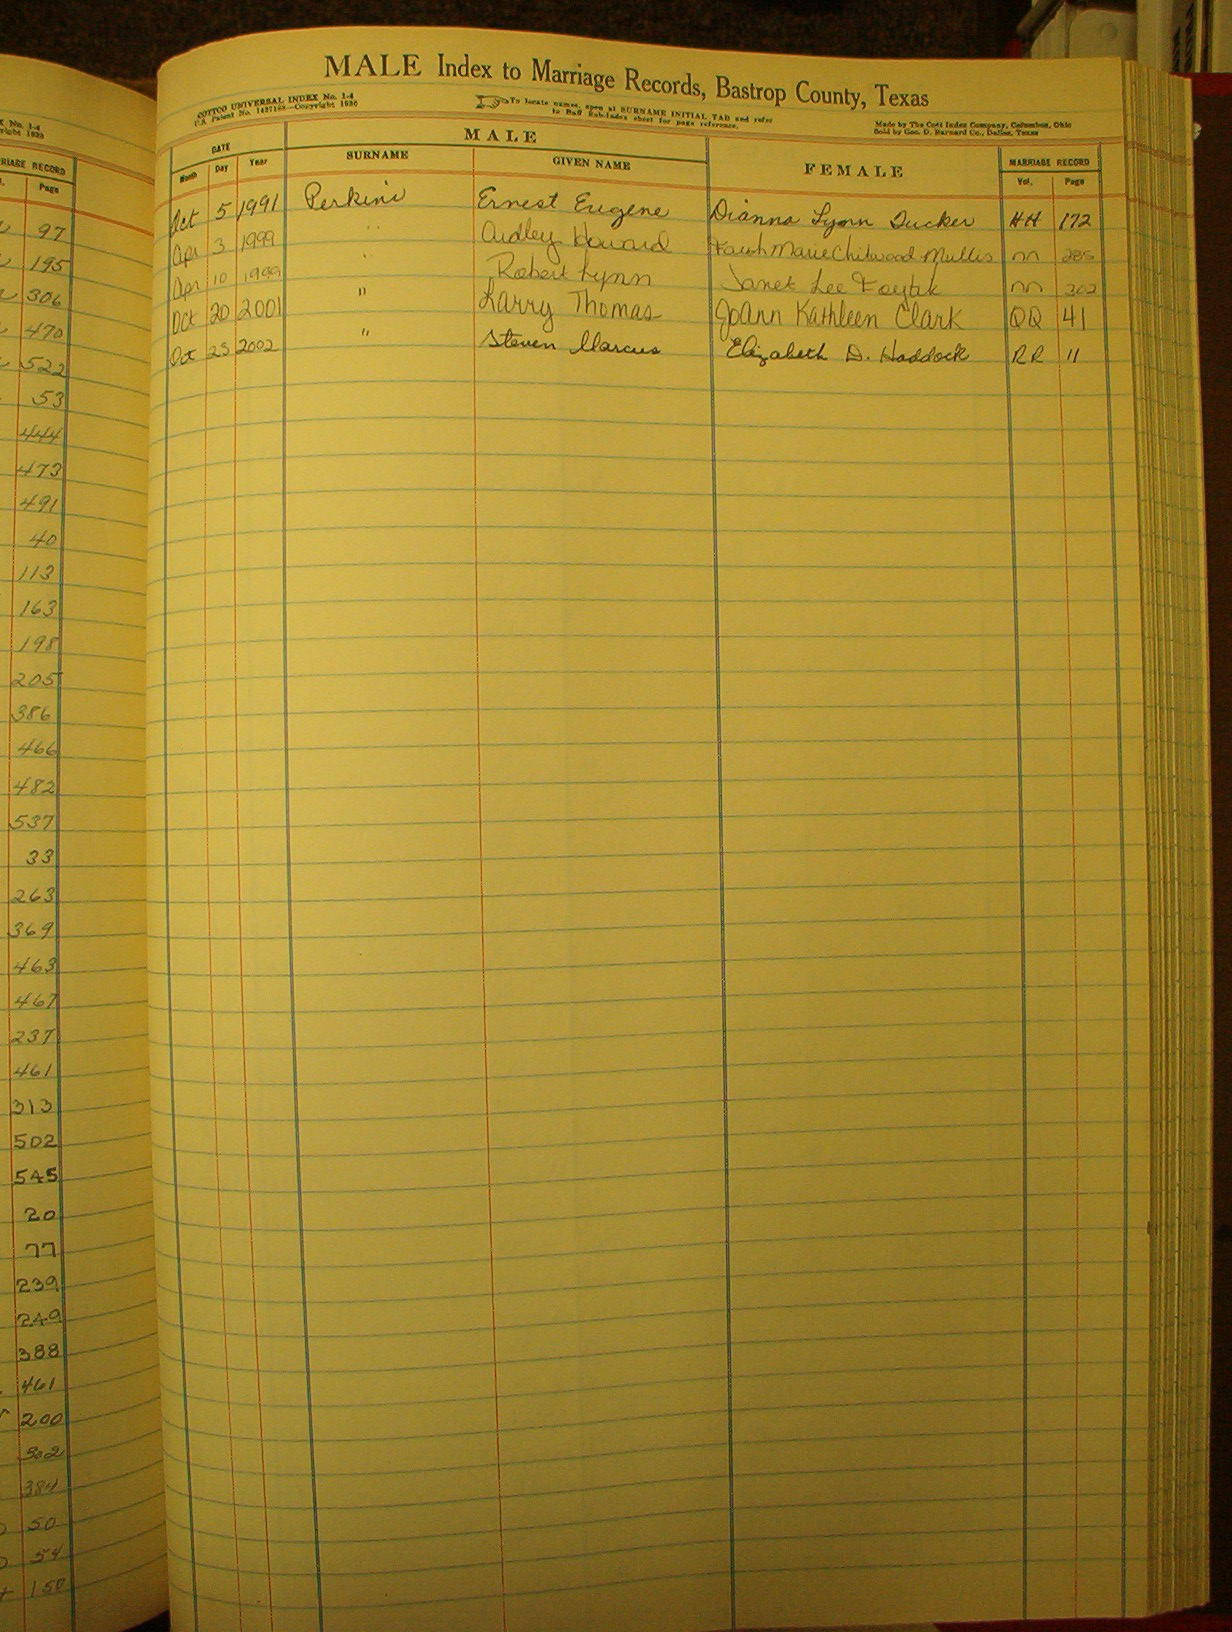 MALE Index to Marriage Records, Bastrop County, Texas
COTTCO UNIVERSAL INDEX No. 1-4
U.S. Patent No. 1427168—Copyright 1936
To locate names, open at SURNAME INITIAL TAB and refer
to Buff Sub-Index sheet for page reference.
Made by The Cott Index Company, Columbus, Ohio
Sold by Geo. D. Barnard Co., Dallas, Texas
DATE MALE FEMALE MARRIAGE RECORD
Month Day Year SURNAME GIVEN NAME Vol. Page
Oct 5 1991 Perkins Ernest Eugene Dianna Lynn Tucker HH 172
Apr 3 1999 " Audley Howard Marie Chitwood Mullis nn 285
Apr 10 1999 " Robert Lynn Janet Lee nn 302
Oct 20 2001 " Larry Thomas JoAnn Kathleen Clark QQ 41
Oct 25 2002 " Steven Marcus Elizabeth D. Haddock RR 11
X No. 1-4
RIAGE RECORD
Page
97
195
306
470
522
53
444
473
491
40
113
163
198
205
386
466
482
537
33
263
369
463
467
237
461
313
502
545
20
77
239
249
388
461
200
302
384
50
54
150